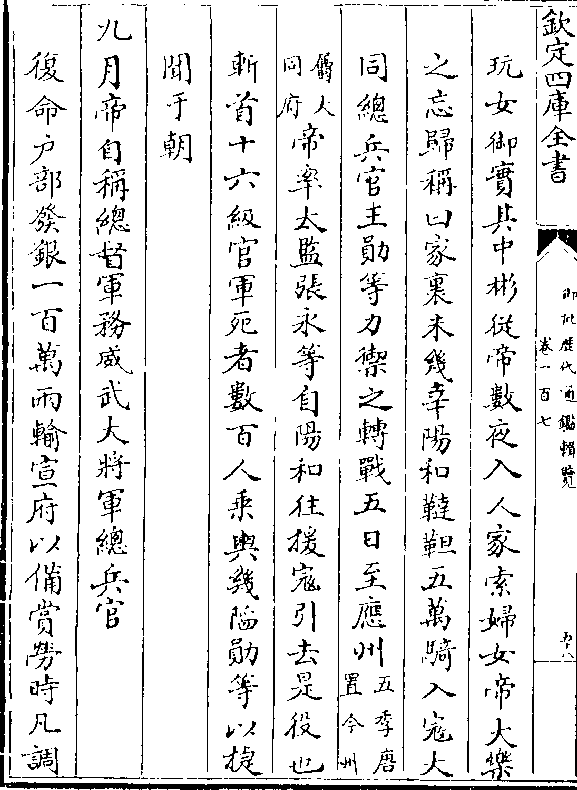 欽定四庫全書
御批歷代通鑑輯覽
卷一百七
五十八
玩女御實其中彬從帝數夜入人家索婦女帝大樂
之忘歸稱曰家裏未幾幸陽和韃靼五萬騎入寇大
同總兵官王勛等力禦之轉戰五日至應州五季唐
置今州
屬大
同府帝率太監張永等自陽和往援寇引去是役也
斬首十六級官軍死者數百人乘輿幾陷勛等以捷
聞于朝
九月帝自稱總督軍務威武大將軍總兵官
復命户部發銀一百萬兩輸宣府以備賞勞時凡調